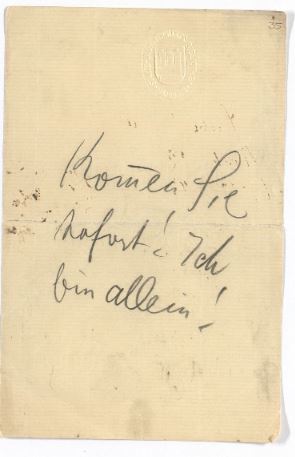 35
Kom̄en Sie
sofort! Ich
bin allein!